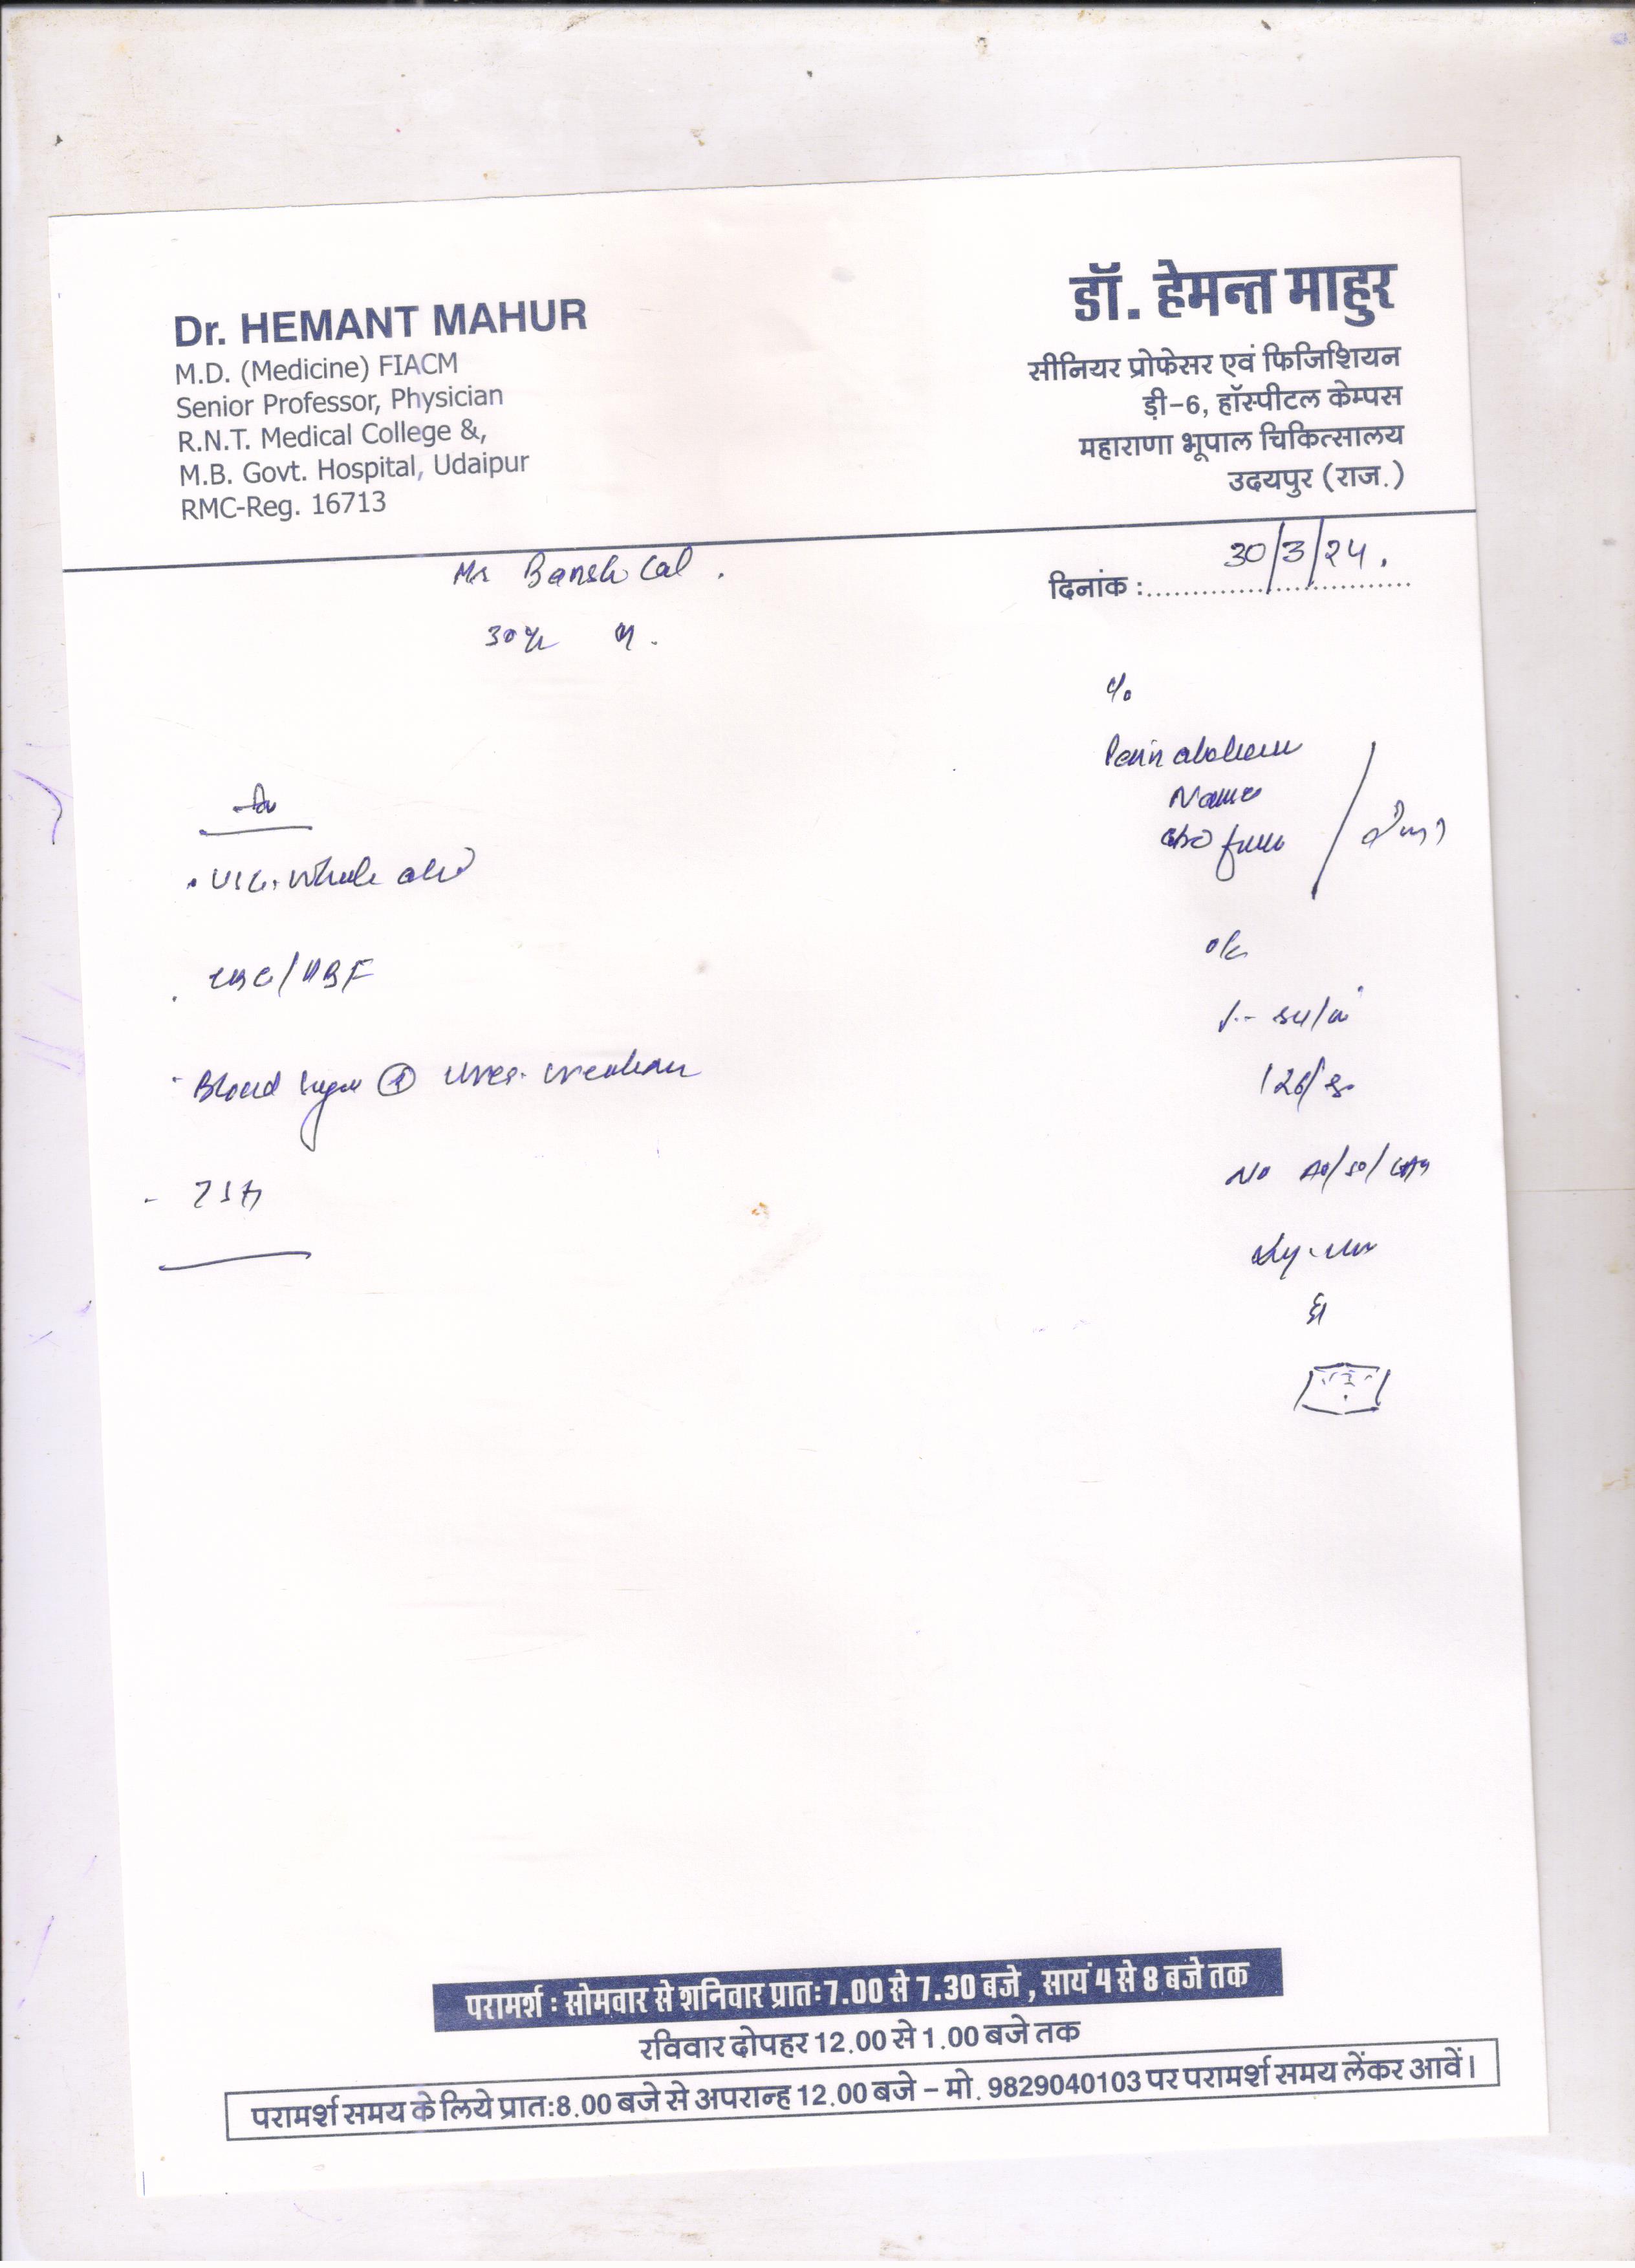 Dr. HEMANT MAHUR
M.D. (Medicine) FIACM
Senior Professor, Physician
R.N.T. Medical College &,
M.B. Govt. Hospital, Udaipur
RMC-Reg. 16713
डॉ. हेमन्त माहुर
सीनियर प्रोफेसर एवं फिजिशियन
ड़ी-6, हॉस्पीटल केम्पस
महाराणा भूपाल चिकित्सालय
उदयपुर (राज.)
दिनांक : 30/3/24.
Mr Banshi Lal.
30yr M.
c/o
Pain abdomen
Nausea
abd
U.S.G. Whole abd
CBC/PBF
Blood sugar (R) Urea. creatinine
TSH
o/e
126/80
No
परामर्श : सोमवार से शनिवार प्रातः 7.00 से 7.30 बजे, सायं 4 से 8 बजे तक
रविवार दोपहर 12.00 से 1.00 बजे तक
परामर्श समय के लिये प्रात:8.00 बजे से अपरान्ह 12.00 बजे – मो. 9829040103 पर परामर्श समय लेंकर आवें।